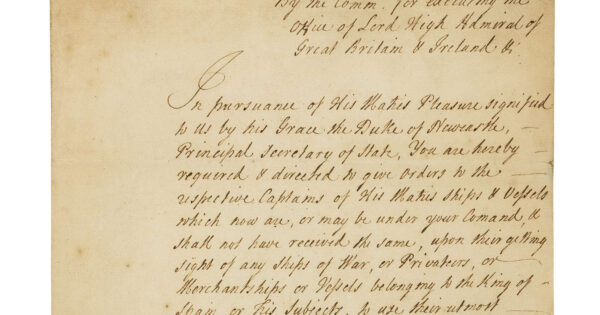 By the Comm. for executing the
Office of Lord High Admiral of
Great Britain & Ireland &c
In pursuance of His Matys Pleasure signified
to us by his Grace the Duke of Newcastle,
Principal Secretary of State, You are hereby
required & directed to give Orders to the
respective Captains of His Matys Ships & Vessels
which now are, or may be under your Comand, &
shall not have received the same, upon their getting
sight of any Ships of War, or Privateers, or
Merchantships or Vessels belonging to the King of
Spain or his Subjects, to use their utmost